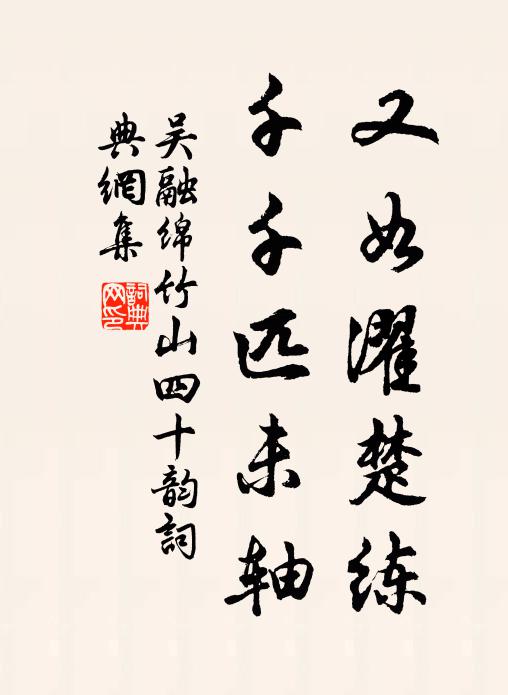 又如濯楚练
千千匹未轴
吴融绵竹山四十韵詞
典網集
詞典网印